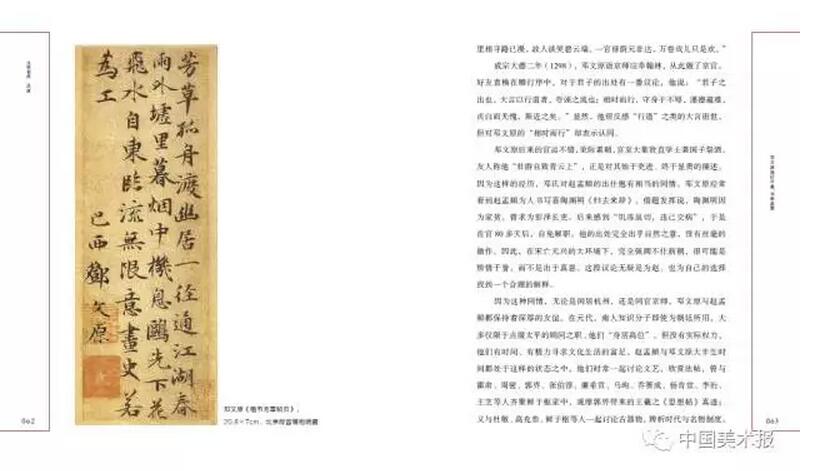 062
芳草孤舟渡幽居一徑通江湖春
雨外墟里暮烟中機息鷗先下花
飛水自東臨流無限意畫史若
為工
巴西鄧文原
邓文原《楷书芳草帖页》,
里相寻路已漫,故人谈笑碧云端。一官修蔚元非达,万卷戏儿只是欢。”
成宗大德二年(1298),邓文原语京师应奉翰林,从此做了京官。
好友袁桷在赠行序中,对于君子的出处有一番议论,他说:“君子之
出也,大言以行道者,夸诬之流也;相时而行,守身于不辱,
而自而无愧,斯近之矣。”显然,他很反感“行道”之类的大言语世,
但对邓文原的“相时而行”却表示认同。
邓文原后来的官运不错,
友人称他“
因为这样的经历,邓氏对赵孟頫的出仕抱有相当的同情。邓文原经常
看到赵孟頫为人书写喜陶渊明《归去来辞》,借题发挥说,陶渊明因
为家贫,曾求为彭泽长吏,后来感到“饥冻虽切,违己交病”,于是
在官80多天后,自免解职。他的出处完全出乎自然之意,没有丝毫的
做作。因此,在宋亡元兴的大环境下,完全强调不仕新朝,很可能是
矫情干誉,而不是出于真意。这段议论无疑是为赵、也为自己的选择
找到一个合理的解释。
因为这种同情,无论是同居杭州,还是同官京师,邓文原与赵孟
頫都保持着深厚的友谊。在元代,南人知识分子即使为朝廷所用,大
多仅限于点缀太平的顾问之职,他们“身居高位”,但没有实际权力,
他们有时间、有精力寻求文化生活的富足。赵孟頫与邓文原大半生时
间都处于这样的状态之中,他们时常一起讨论文艺、欣赏法帖,曾与
霍肃、周密、郭界、张伯淳、廉希贡、马昫、乔篑成、杨肯堂、李衎、
王芝等人齐聚鲜于枢家中,观摩郭界带来的王羲之《思想帖》真迹;
又与杜敬、高克恭、鲜于枢等人一起讨论古器物,辨析时代与名物制度。
063
中国美术报